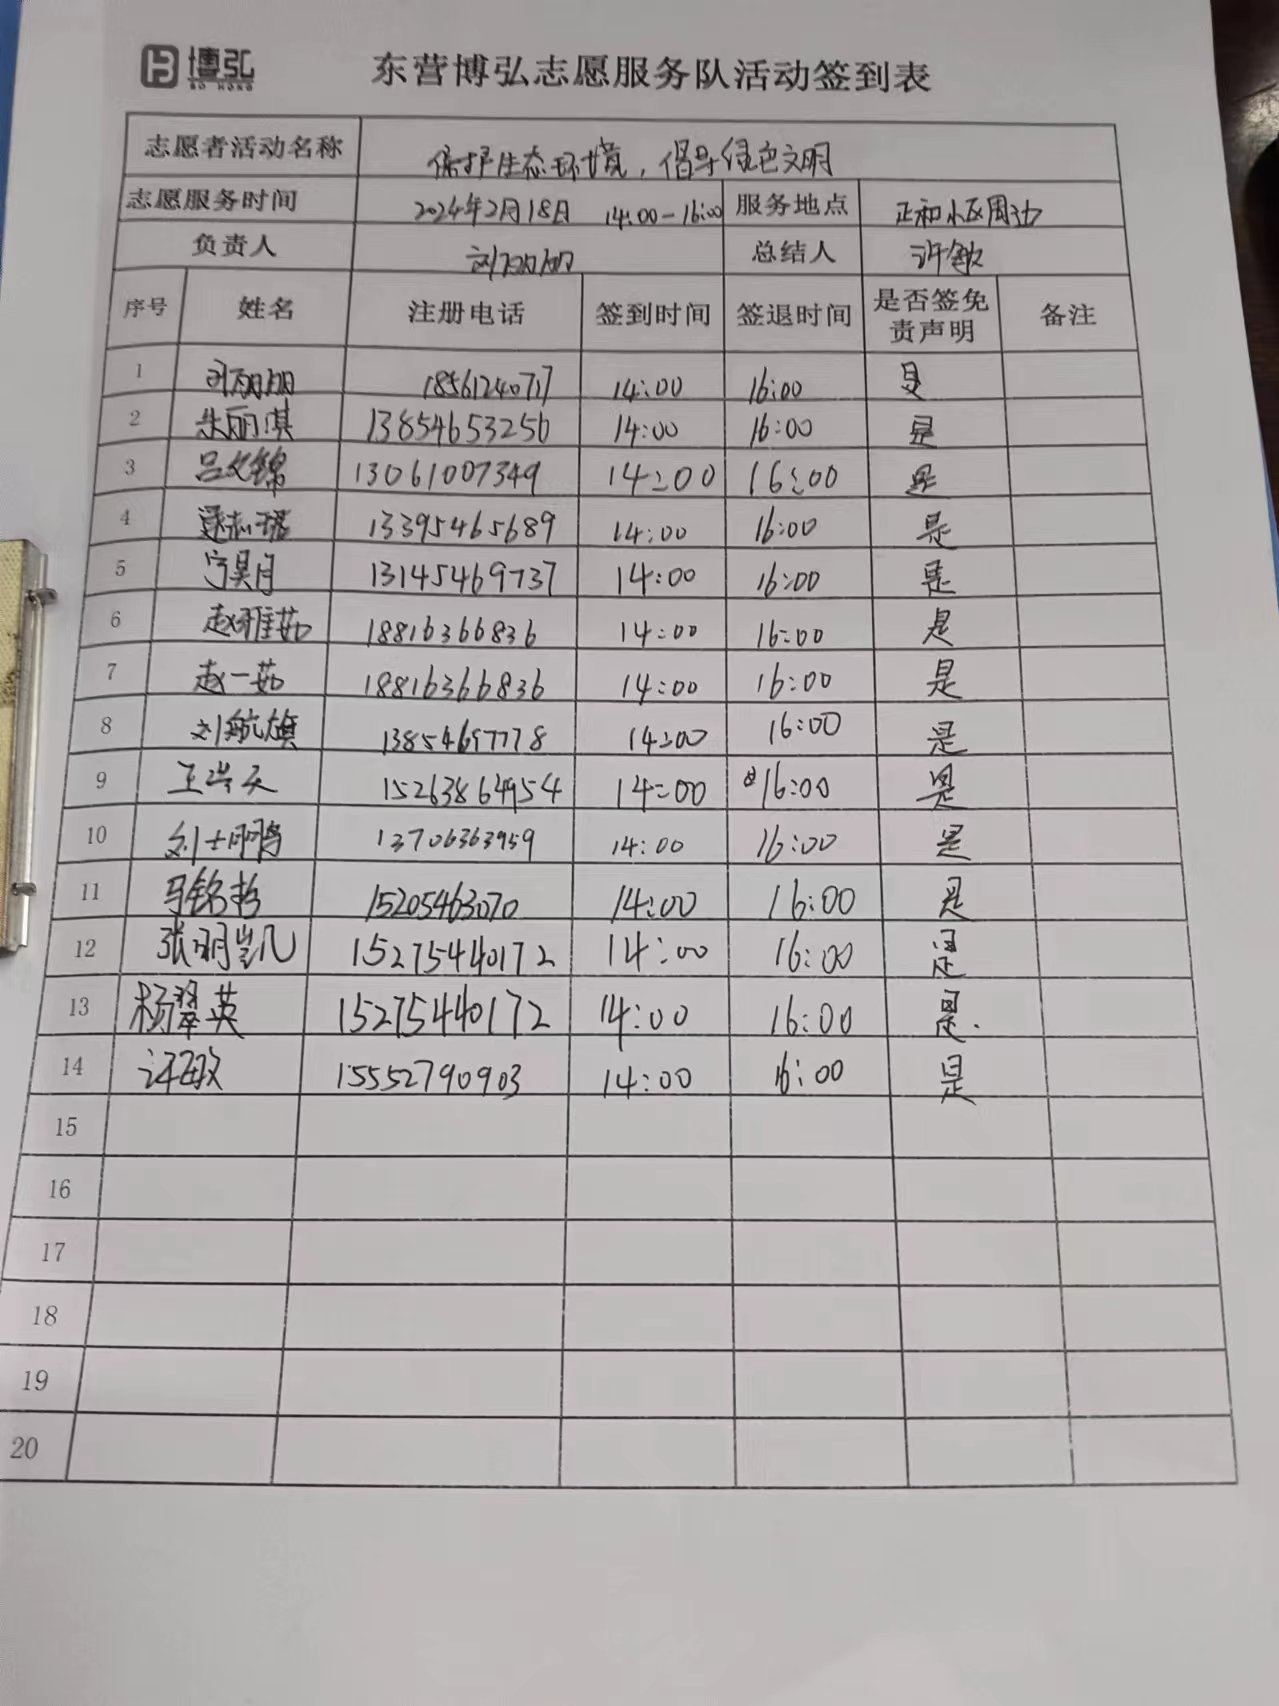 博弘
BO HONG
东营博弘志愿服务队活动签到表
志愿者活动名称 保护生态环境，倡导绿色文明
志愿服务时间 2024年2月18日 14:00-16:00 服务地点 正和小区周边
负责人 刘丽丽 总结人 许敏
序号 姓名 注册电话 签到时间 签退时间 是否签免责声明 备注
1 18561240717 14:00 16:00 是
2 朱丽淇 13854653256 14:00 16:00 是
3 吕文锦 13061007349 14:00 16:00 是
4 13395465689 14:00 16:00 是
5 宁昊月 13145469737 14:00 16:00 是
6 赵雅茹 18816366836 14:00 16:00 是
7 赵一茹 18816366836 14:00 16:00 是
8 刘航旗 13854697778 14:00 16:00 是
9 王岩天 14:00 16:00 是
10 刘士鹏 13706363959 14:00 16:00 是
11 马铭哲 15205463070 14:00 16:00 是
12 张明凯 15275440172 14:00 16:00 是
13 杨翠英 15275440172 14:00 16:00 是.
14 许敏 15552790903 14:00 16:00 是
15
16
17
18
19
20